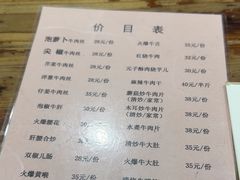 价目表
泡萝卜牛肉丝 28元/份
尖椒牛肉丝 28元/份
芹菜牛肉丝 28元/份
洋葱牛肉丝 28元/份
仔姜牛肉丝 35元/份
泡椒牛肝 35元/份
火爆腰花 35元/份
肝腰合炒 35元/份
双椒儿肠 28元/份
火爆黄喉 35元/份
火爆牛舌 35元/份
红烧牛肉 32元/份
元子酥肉烧芋儿 30元/份
麻辣牛肉干 40元/半斤
蘑菇炒牛肉片（清炒/家常） 35元/份
木耳炒牛肉片（清炒/家常） 38元/份
水煮牛肉片 38元/份
清炒牛大肚 35元/份
火爆牛大肚 35元/份